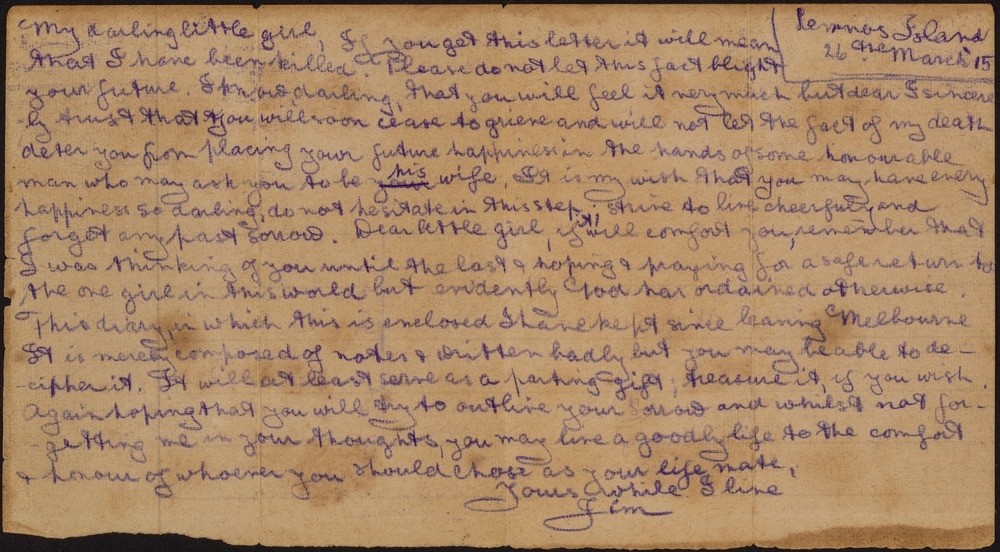 Lemnos Island
26th March 15
My darling little girl, If you get this letter it will mean
that I have been killed. Please do not let this fact blight
your future. I know darling, that you will feel it very much but dear I sincere
-ly trust that you will soon cease to grieve and will not let the fact of my death
deter you from placing your future happiness in the hands of some honourable
man who may ask you to be his wife. It is my wish that you may have every
happiness so darling, do not hesitate in this step, strive to live cheerfully and
forget any past sorrow. Dear little girl, if it will comfort you, remember that
I was thinking of you until the last & hoping & praying for a safe return to
the one girl in this world but evidently God has ordained otherwise.
This diary, in which this is enclosed I have kept since leaving Melbourne
It is merely composed of notes & written badly but you may be able to de-
-cipher it. It will at least serve as a parting gift; treasure it, if you wish.
Again hoping that you will try to outlive your sorrow and whilst not for-
-getting me in your thoughts, you may live a goodly life to the comfort
& honour of whoever you should chose as your life mate,
Yours while I live
Jim